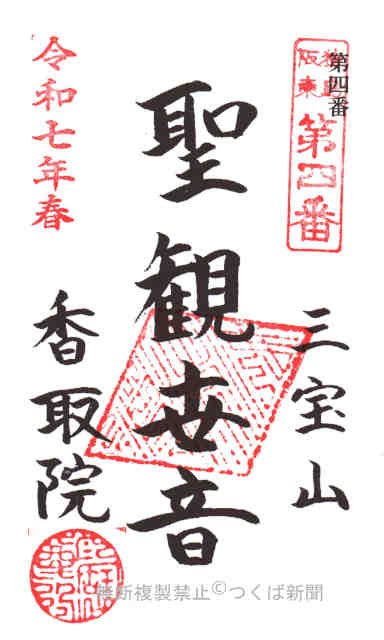 第四番
坂東
第四番
三宝山
聖観世音
香取院
令和七年春
無断複製禁止©つくば新聞